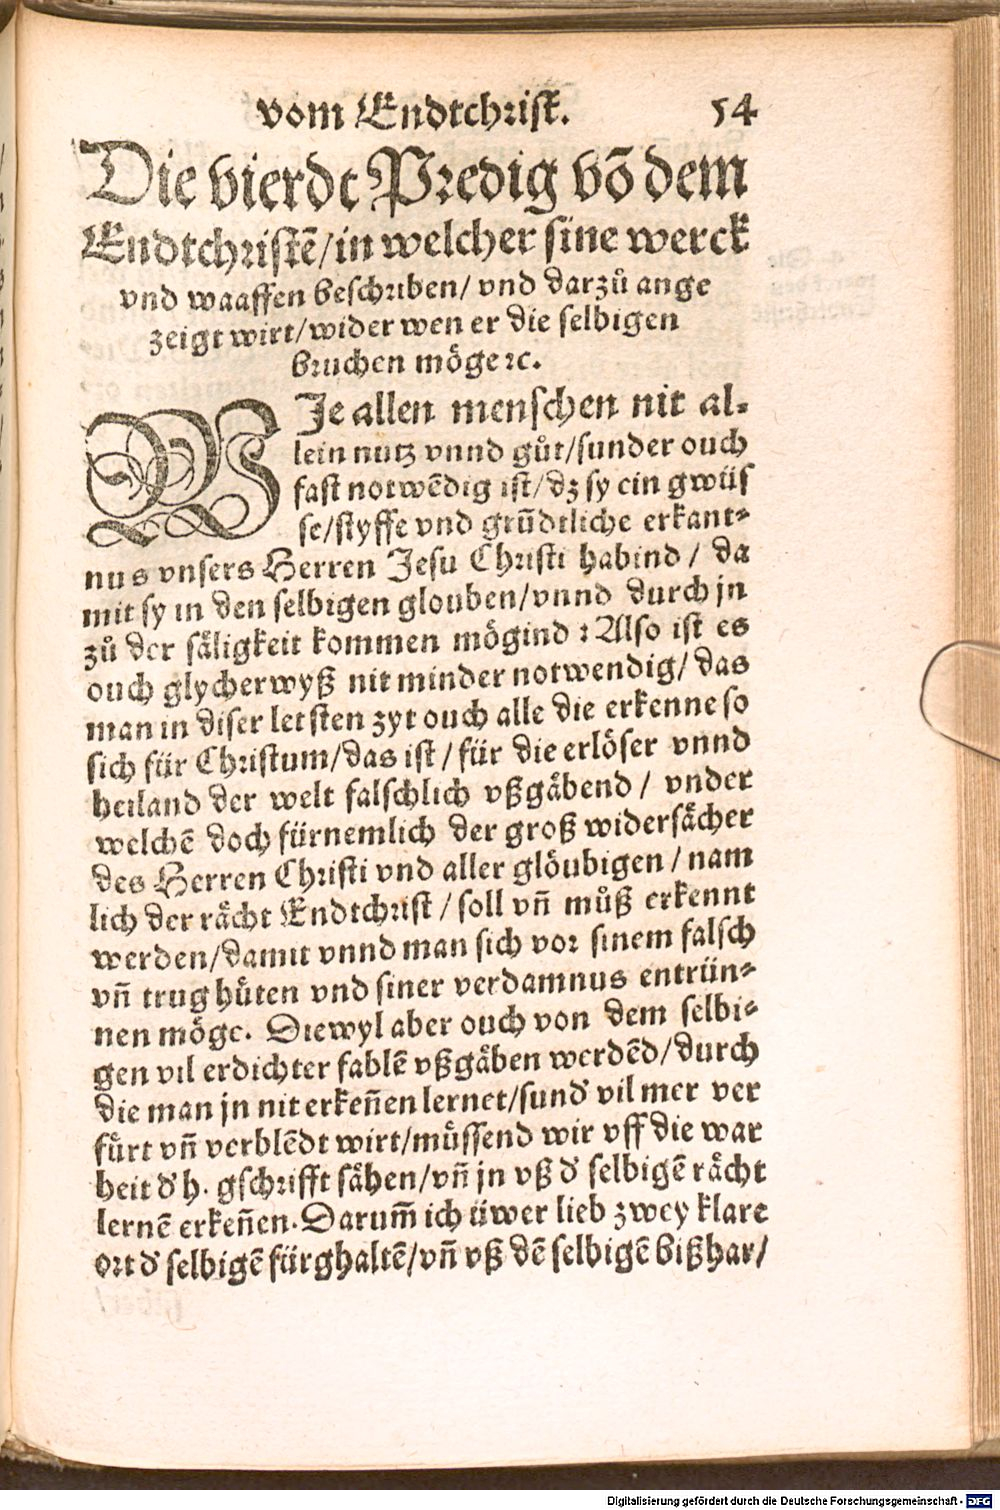 vom Endtchrist. 54
Die vierdt Predig võ dem
Endtchristẽ/in welcher sine werck
vnd waaffen beschriben/ vnd darzů ange
zeigt wirt/wider wen er die selbigen
bruchen möge ⁊c.
WJe allen menschen nit al⸗
lein nutz vnnd gůt/sunder ouch
fast notwẽdig ist/dz sy ein gwüs
se/styffe vnd grũdtliche erkant⸗
nus vnsers Herren Jesu Christi habind/ da
mit sy in den selbigen glouben/vnnd durch jn
zů der säligkeit kommen mögind : Also ist es
ouch glycherwyß nit minder notwendig/ das
man in diser letsten zyt ouch alle die erkenne so
sich für Christum/das ist/ für die erlöser vnnd
heiland der welt falschlich vßgäbend/ vnder
welchẽ doch fürnemlich der groß widersächer
des Herren Christi vnd aller glöubigen/ nam
lich der rächt Endtchrist/ soll vñ můß erkennt
werden/damit vnnd man sich vor sinem falsch
vñ trug hüten vnd siner verdamnus entrün⸗
nen möge. Diewyl aber ouch von dem selbi⸗
gen vil erdichter fablẽ vßgäben werdẽd/durch
die man jn nit erkeñen lernet/sund' vil mer ver
fürt vñ verblẽdt wirt/müssend wir vff die war
heit d' h. gschrifft sähen/vñ jn vß d' selbigẽ rächt
lernẽ erkeñen. Darum̃ ich üwer lieb zwey klare
ort d' selbigẽ fürghaltẽ/vñ vß dẽ selbigẽ bißhar/
Digitalisierung gefördert durch die Deutsche Forschungsgemeinschaft - DFG